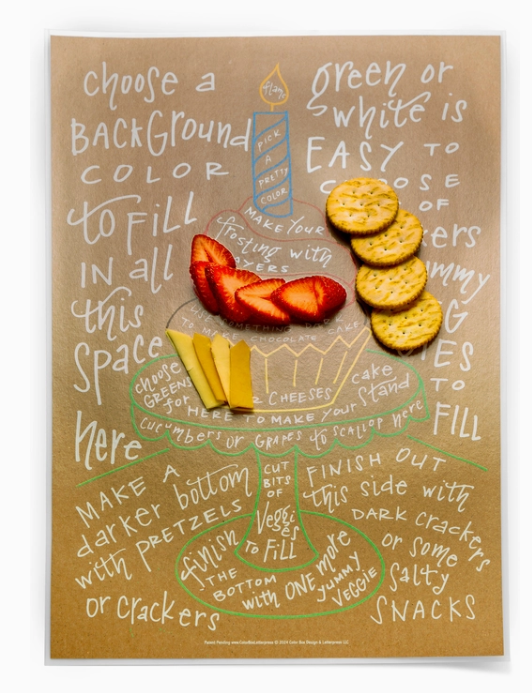 choose a
BACKGROUND
COLOR
to Fill
IN all
this
Space
here
green or
white is
EASY TO
OF
ers
G
IES
TO
FILL
flame
PICK
A
PRETTY
COLOR
MAKE YOUR
frosting with
YERS
TO MAKE CHOCOLATE CAKE
choose
GREENS
for
2 CHEESES
cake
Stand
HERE TO MAKE YOUR
cucumbers or GRAPES to SCALLOP here
CUT
BITS
OF
Veggies
TO Fill
MAKE A
darker bottom
with PRETZELS
or crackers
FINISH OUT
this side with
DARK crackers
or some
Salty
SNACKS
finish
THE
BOTTOM
with ONE more
yummy
VEGGIE